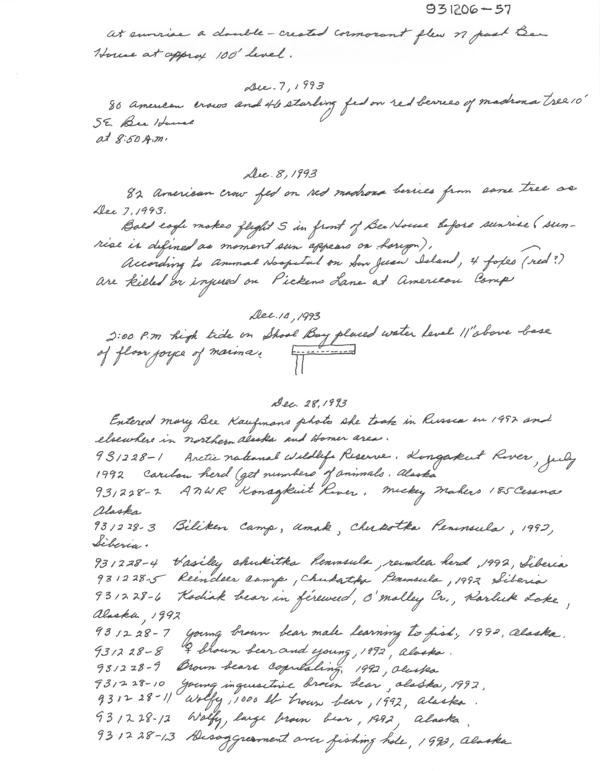 931206-57
at sunrise a double-crested cormorant flew N past Bee
House at approx 100' level.
Dec. 7, 1993
80 American crows and 46 starling fed on red berries of madrona tree 10'
SE Bee House
at 8:50 A.M.
Dec. 8, 1993
82 American crow fed on red madrona berries from same tree as
Dec 7, 1993.
Bald eagle makes flight S in front of Bee House before sunrise (sun-
rise is defined as moment sun appears on horizon).
According to Animal Hospital on San Juan Island, 4 foxes (red?)
are killed or injured on Pickens Lane at American Camp
Dec. 10, 1993
2:00 P.M high tide in Shoal Bay placed water level 11" above base
of floor joyce of marina.
Dec. 28, 1993
Entered Mary Bee Kaufmans photo she took in Russia in 1992 and
elsewhere in northern Alaska and Homer area.
931228-1 Arctic National Wildlife Reserve. Kongakut River, July
1992 caribou herd (get numbers of animals. Alaska
931228-2 ANWR Konagkuit River. Mickey Mahers 185 Cessna
Alaska
931228-3 Biliken Camp, Amak, Chukotka Peninsula, 1992,
Siberia.
931228-4 Vasiley Chukitka Peninsula, reindeer herd, 1992, Siberia
931228-5 Reindeer camp, Chukatka Peninsula, 1992 Siberia
931228-6 Kodiak bear in fireweed, O'Malley Cr., Karluk Lake,
Alaska, 1992
931228-7 Young brown bear male learning to fish, 1992, Alaska.
931228-8 ♀ brown bear and young, 1992, Alaska.
931228-9 Brown bears copulating, 1992, Alaska
931228-10 Young inquisitive brown bear, Alaska, 1992.
931228-11 Wolfy, 1000 lb brown bear, 1992, Alaska.
931228-12 Wolfy, large brown bear, 1992, Alaska.
931228-13 Disaggreement over fishing hole, 1992, Alaska